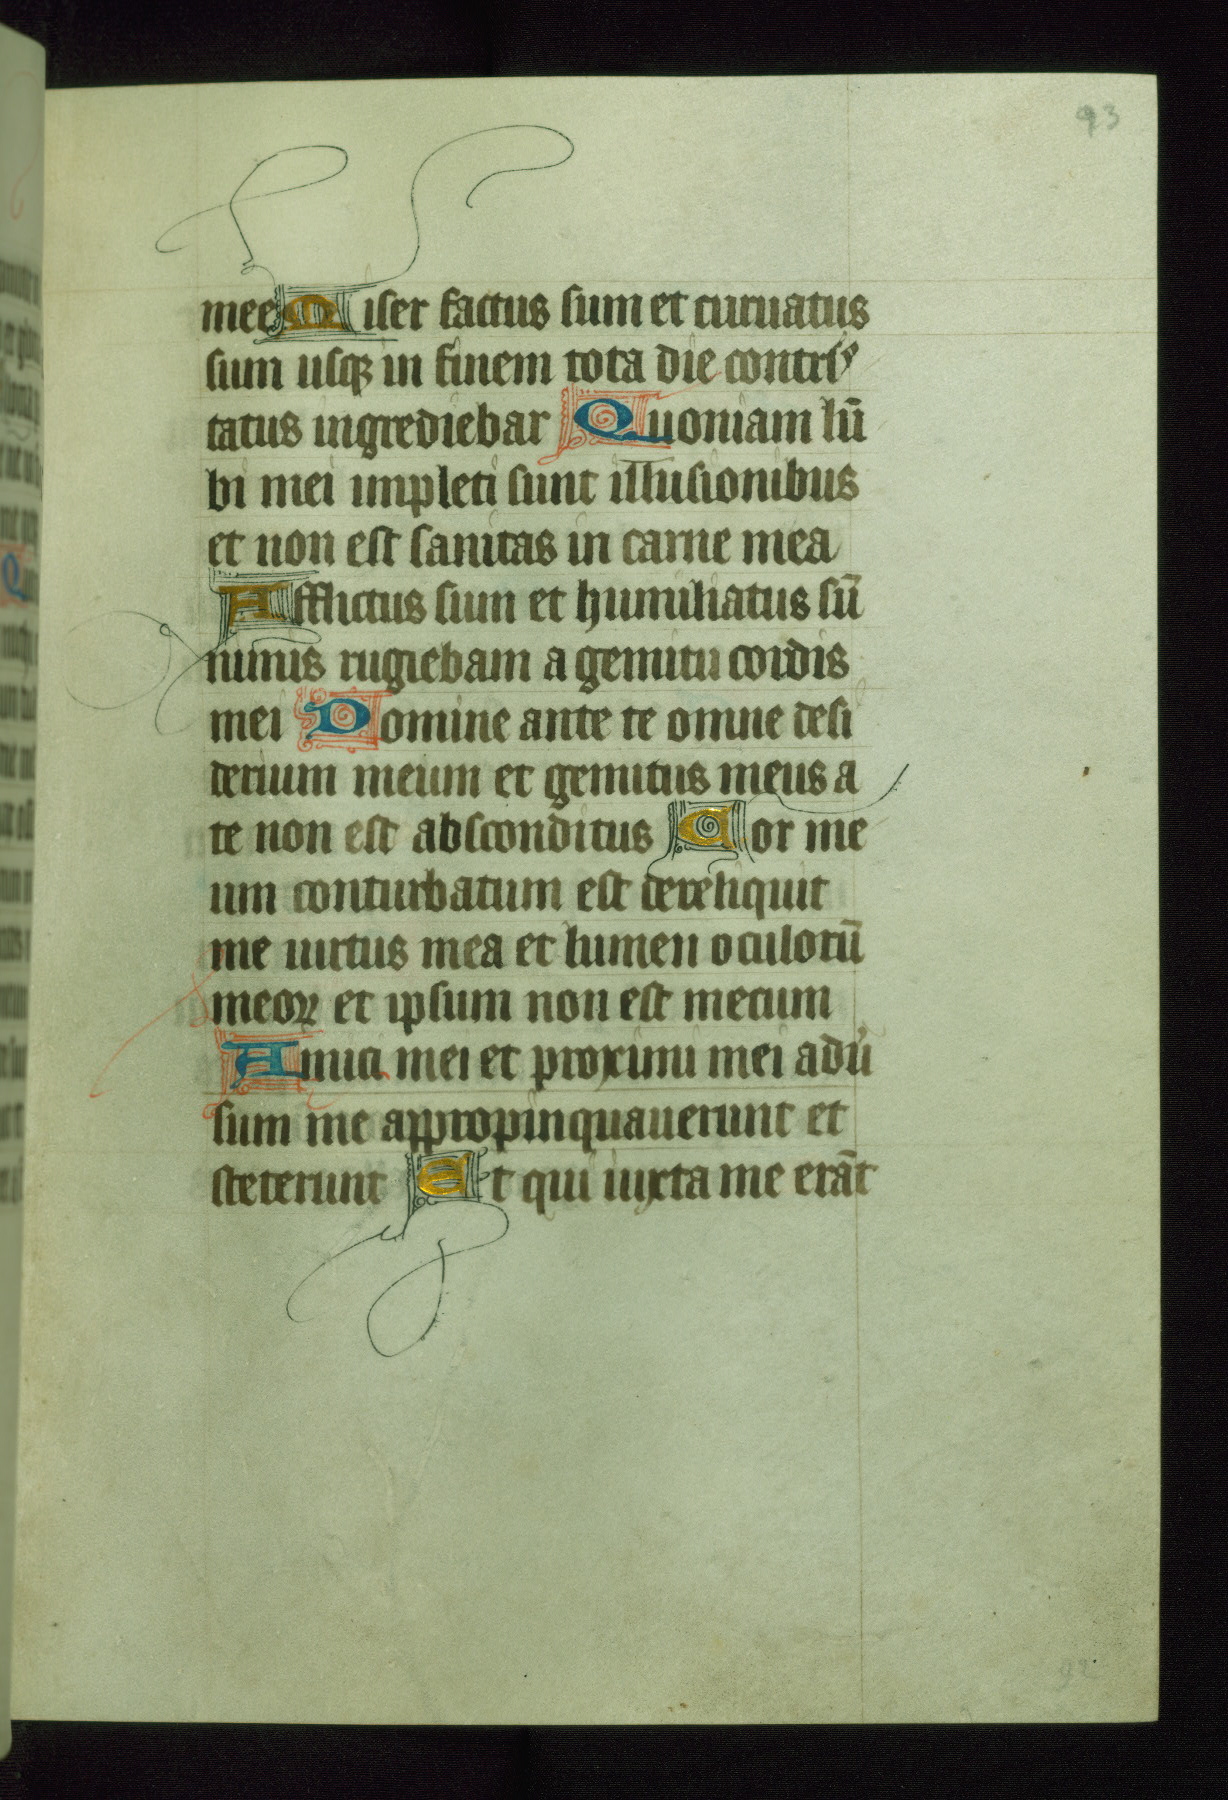 93
mee Miser factus sum et curuatus
sum usqꝫ in finem tota die contris
tatus ingrediebar Quoniam lū
bi mei impleti sunt illusionibus
et non est sanitas in carne mea
Afflictus sum et humiliatus sū
nimis rugiebam a gemitu cordis
mei Domine ante te omne desi
derium meum et gemitus meus a
te non est absconditus Cor me
um conturbatum est dereliquit
me uirtus mea et lumen oculorū
meoꝝ et ipsum non est mecum
Amici mei et proximi mei adũ
sum me appropinquauerunt et
steterunt Et qui iuxta me erāt
92